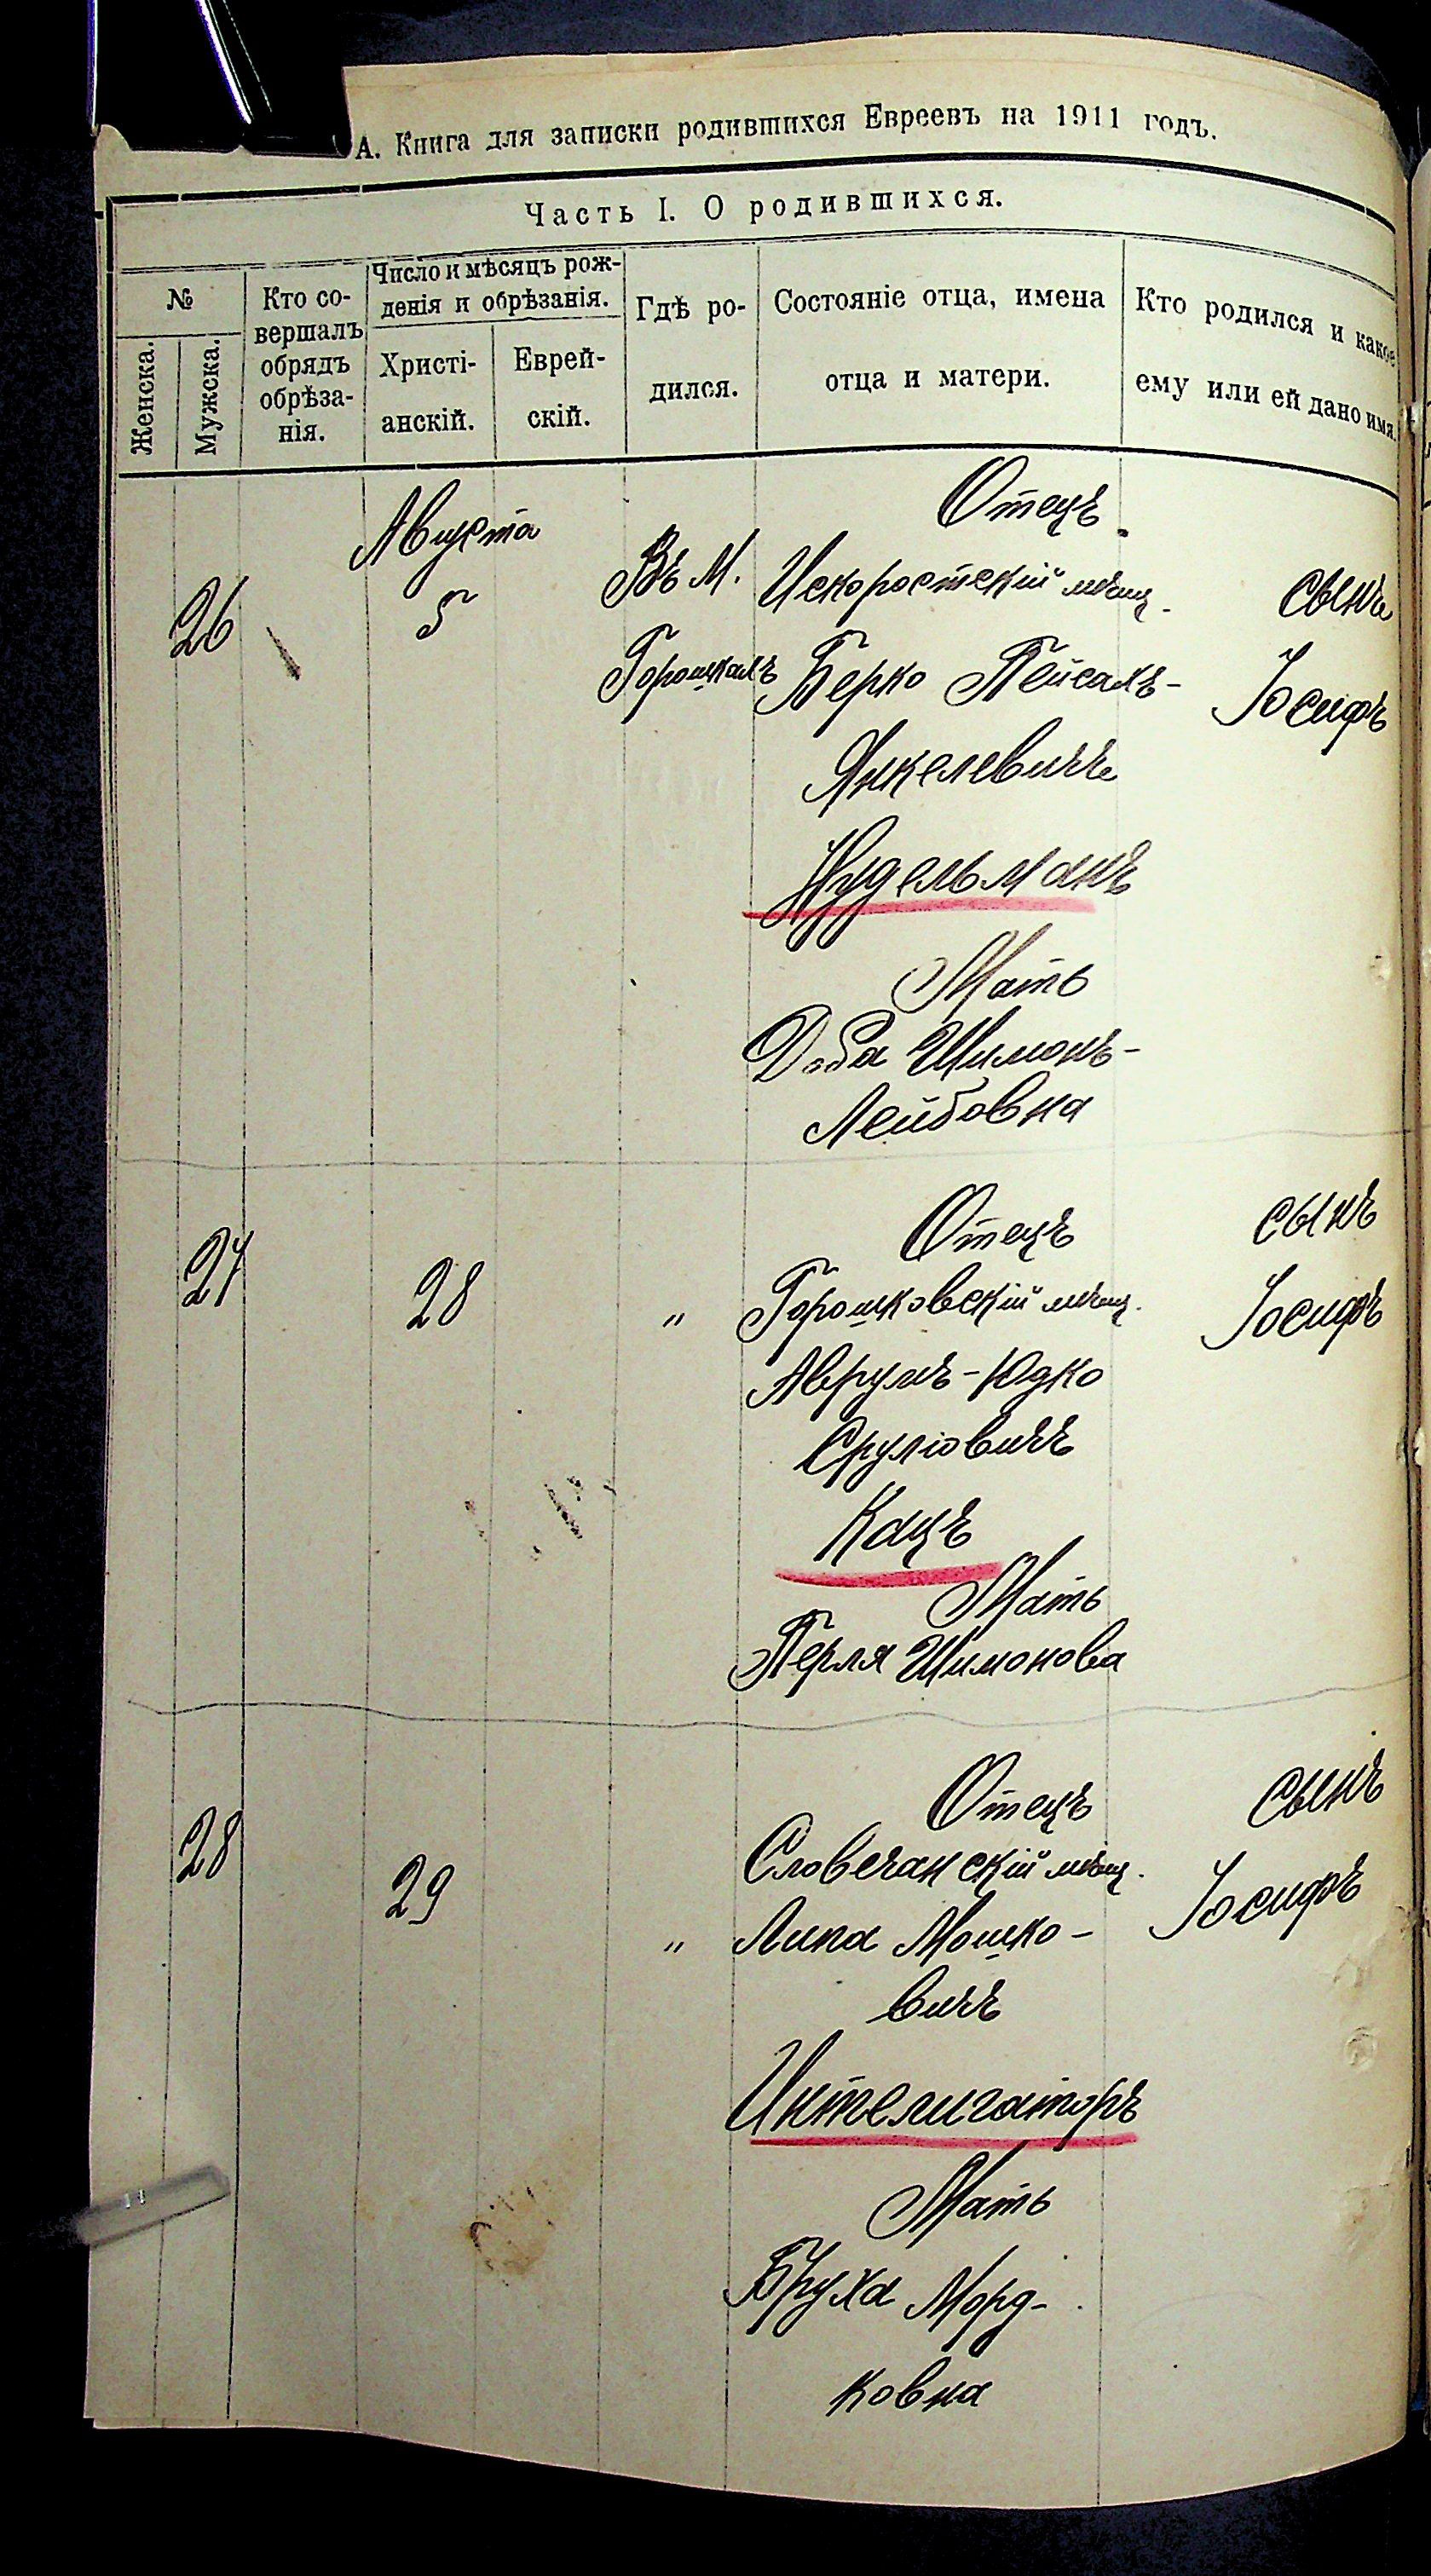 А. Книга для записки родившихся Евреевъ на 1911 годъ.
Часть I. О родившихся.
№
Женска.
Мужска.
Кто со-
вершалъ
обрядъ
обрѣза-
нія.
Число и мѣсяцъ рож-
денія и обрѣзанія.
Христі-
анскій.
Еврей-
скій.
Гдѣ ро-
дился.
Состояніе отца, имена
отца и матери.
Кто родился и какое
ему или ей дано имя.
26
Августа
5
Въ М.
Горошкахъ
Отецъ
Искоростскій мѣщ.
Берко Пейсахъ-
Янкелевичъ
Нудельманъ
Мать
Доба Шимонъ-
Лейбовна
сынъ
Іосифъ
27
28
"
Отецъ
Горошковскій мѣщ.
Аврумъ-Юдко
Сруліовичъ
Кацъ
Мать
Перля Шимонова
сынъ
Іосифъ
28
29
"
Отецъ
Словечанскій мѣщ.
Липа Мошко-
вичъ
Интелигаторъ
Мать
Бруха Морд-
ковна
сынъ
Іосифъ